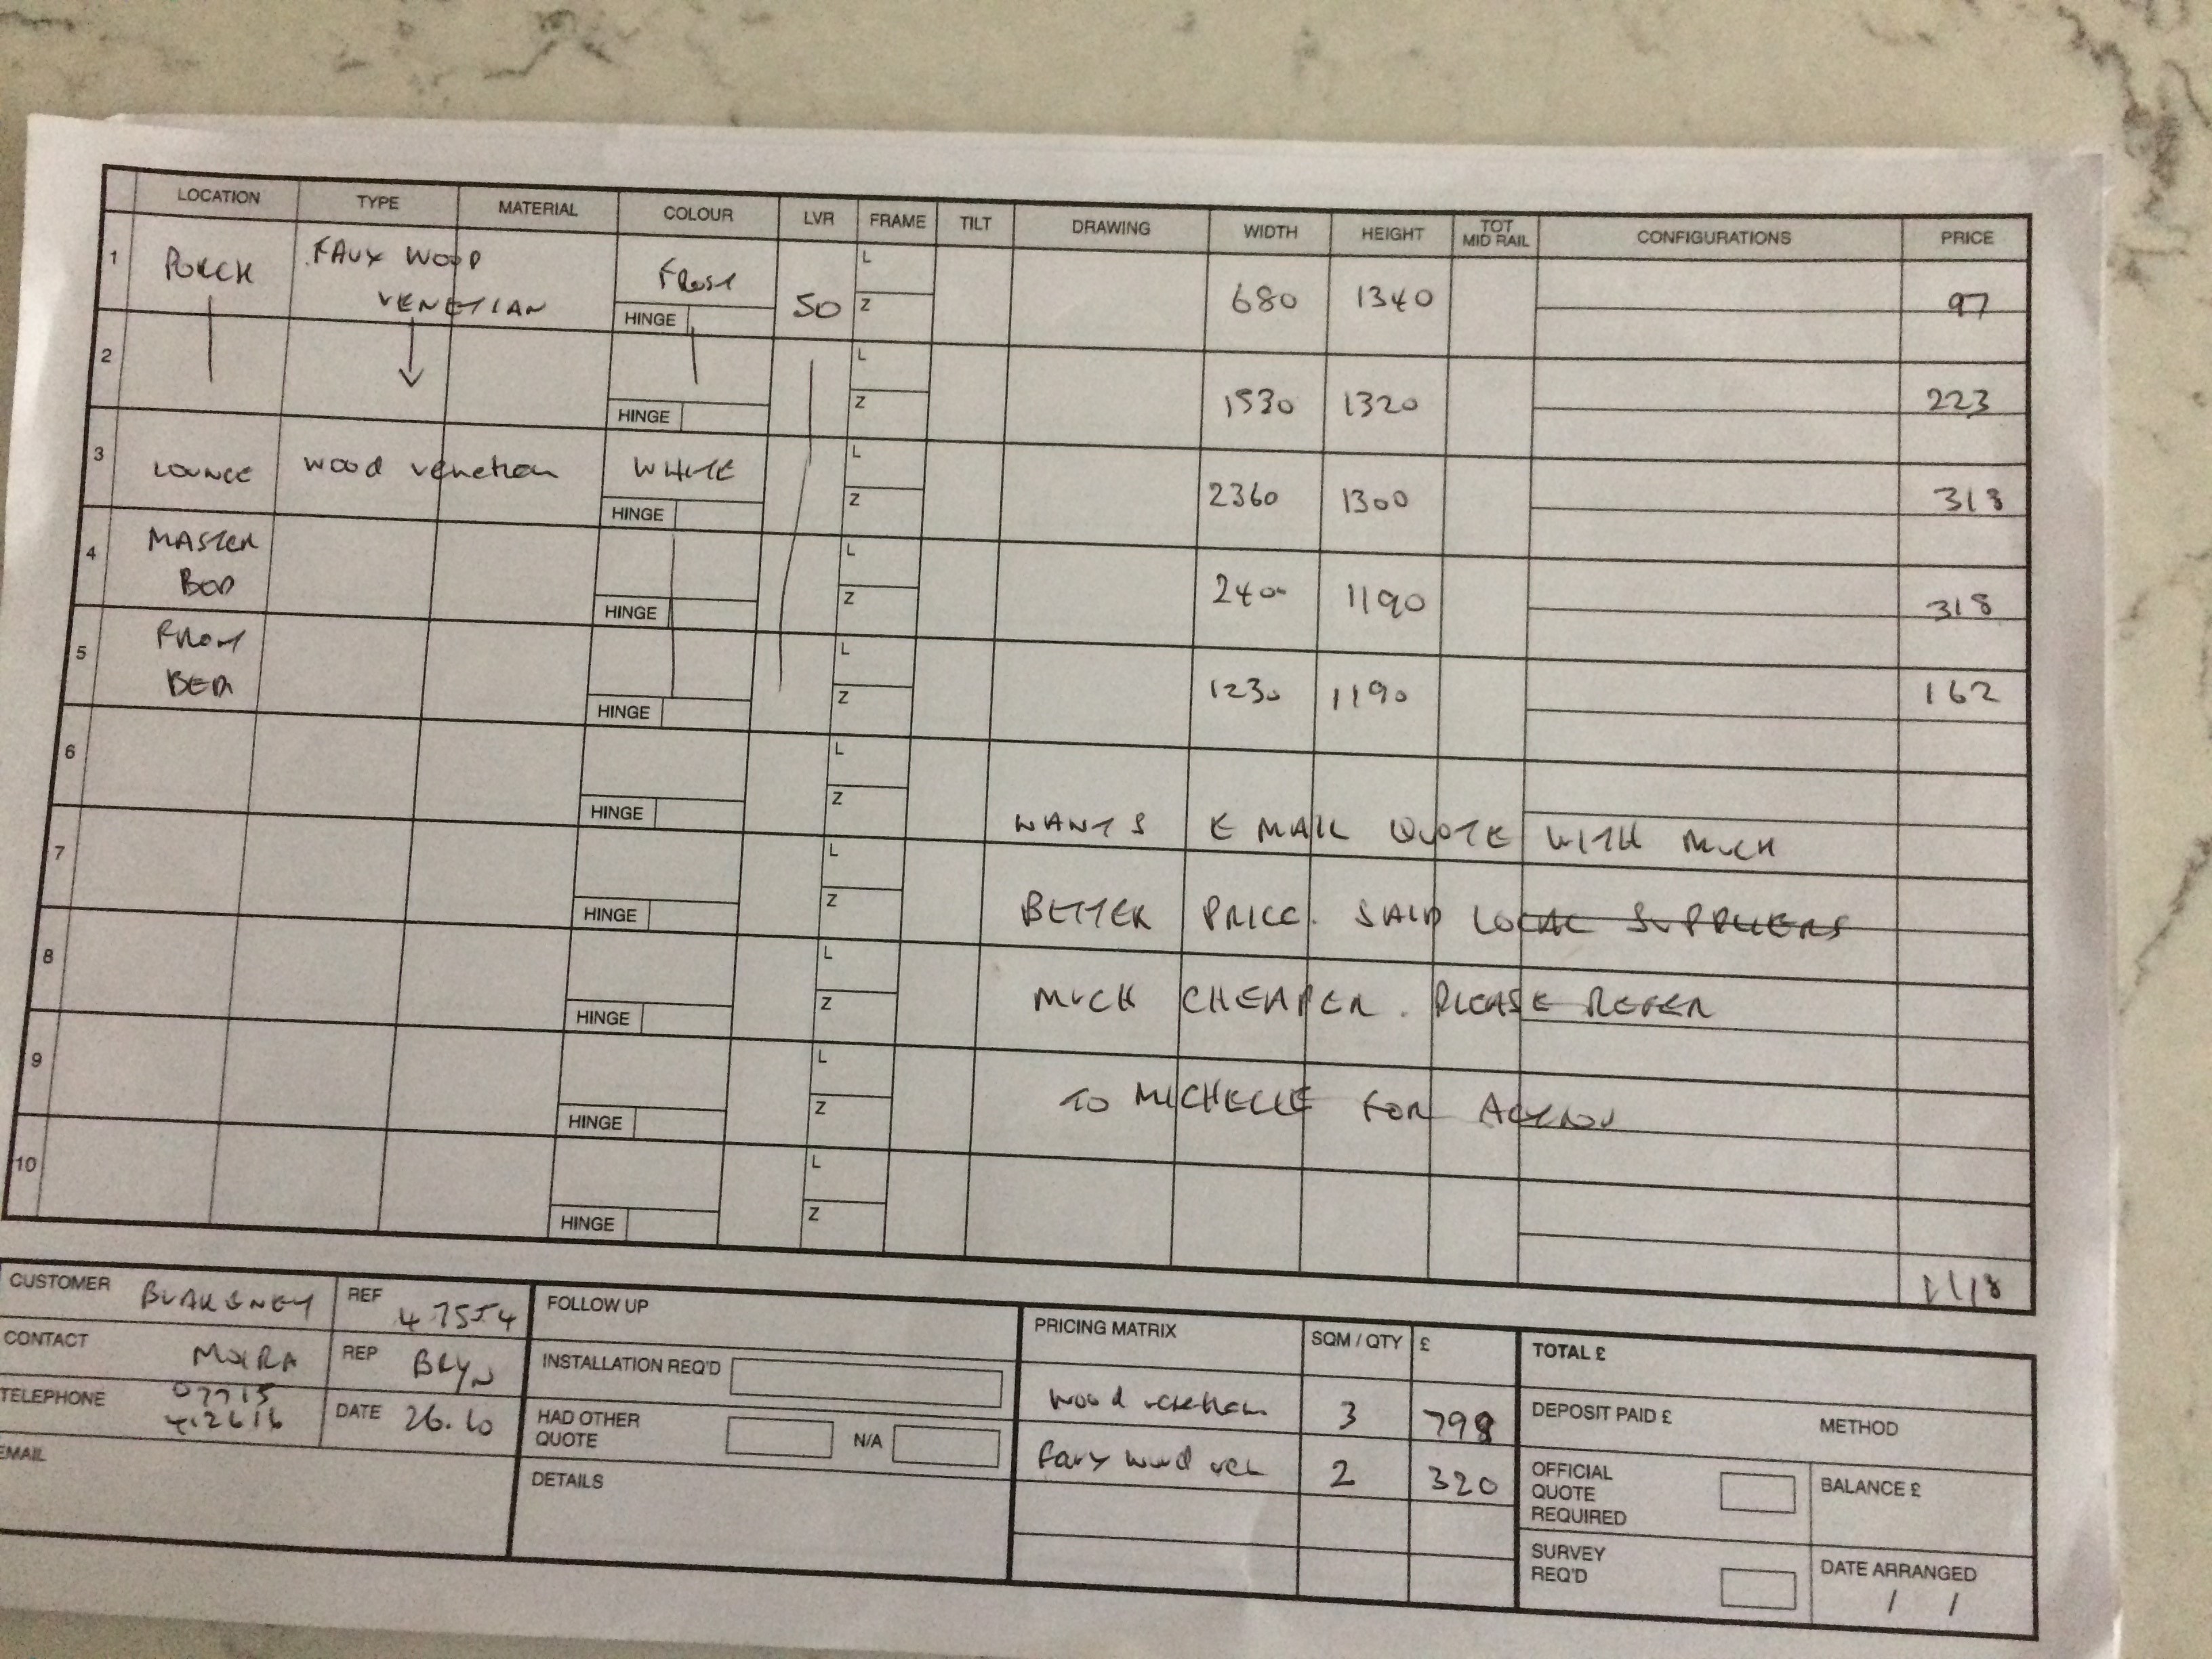 LOCATION TYPE MATERIAL COLOUR LVR FRAME TILT DRAWING WIDTH HEIGHT TOT MID RAIL CONFIGURATIONS PRICE
1 PORCH FAUX WOOD VENETIAN FROST HINGE 50 L Z 680 1340 97
2 HINGE L Z 1530 1320 223
3 LOUNGE WOOD VENETIAN WHITE HINGE L Z 2360 1300 318
4 MASTER BED HINGE L Z 2400 1190 318
5 FRONT BED HINGE L Z 1230 1190 162
6 HINGE L Z
WANTS E MAIL QUOTE WITH MUCH
7 HINGE L Z
BETTER PRICE. SAID LOCAL SUPPLIERS
8 HINGE L Z
MUCH CHEAPER. PLEASE REFER
9 HINGE L Z
TO MICHELLE FOR ACTION
10 HINGE L Z
1118
CUSTOMER BLAKENEY REF 47554
CONTACT MOIRA REP BRYN
TELEPHONE 07715 412616 DATE 26.10
EMAIL
FOLLOW UP
INSTALLATION REQ'D
HAD OTHER QUOTE N/A
DETAILS
PRICING MATRIX SQM / QTY £
Wood venetian 3 798
Faux wood ven 2 320
TOTAL £
DEPOSIT PAID £ METHOD
OFFICIAL QUOTE REQUIRED BALANCE £
SURVEY REQ'D DATE ARRANGED / /